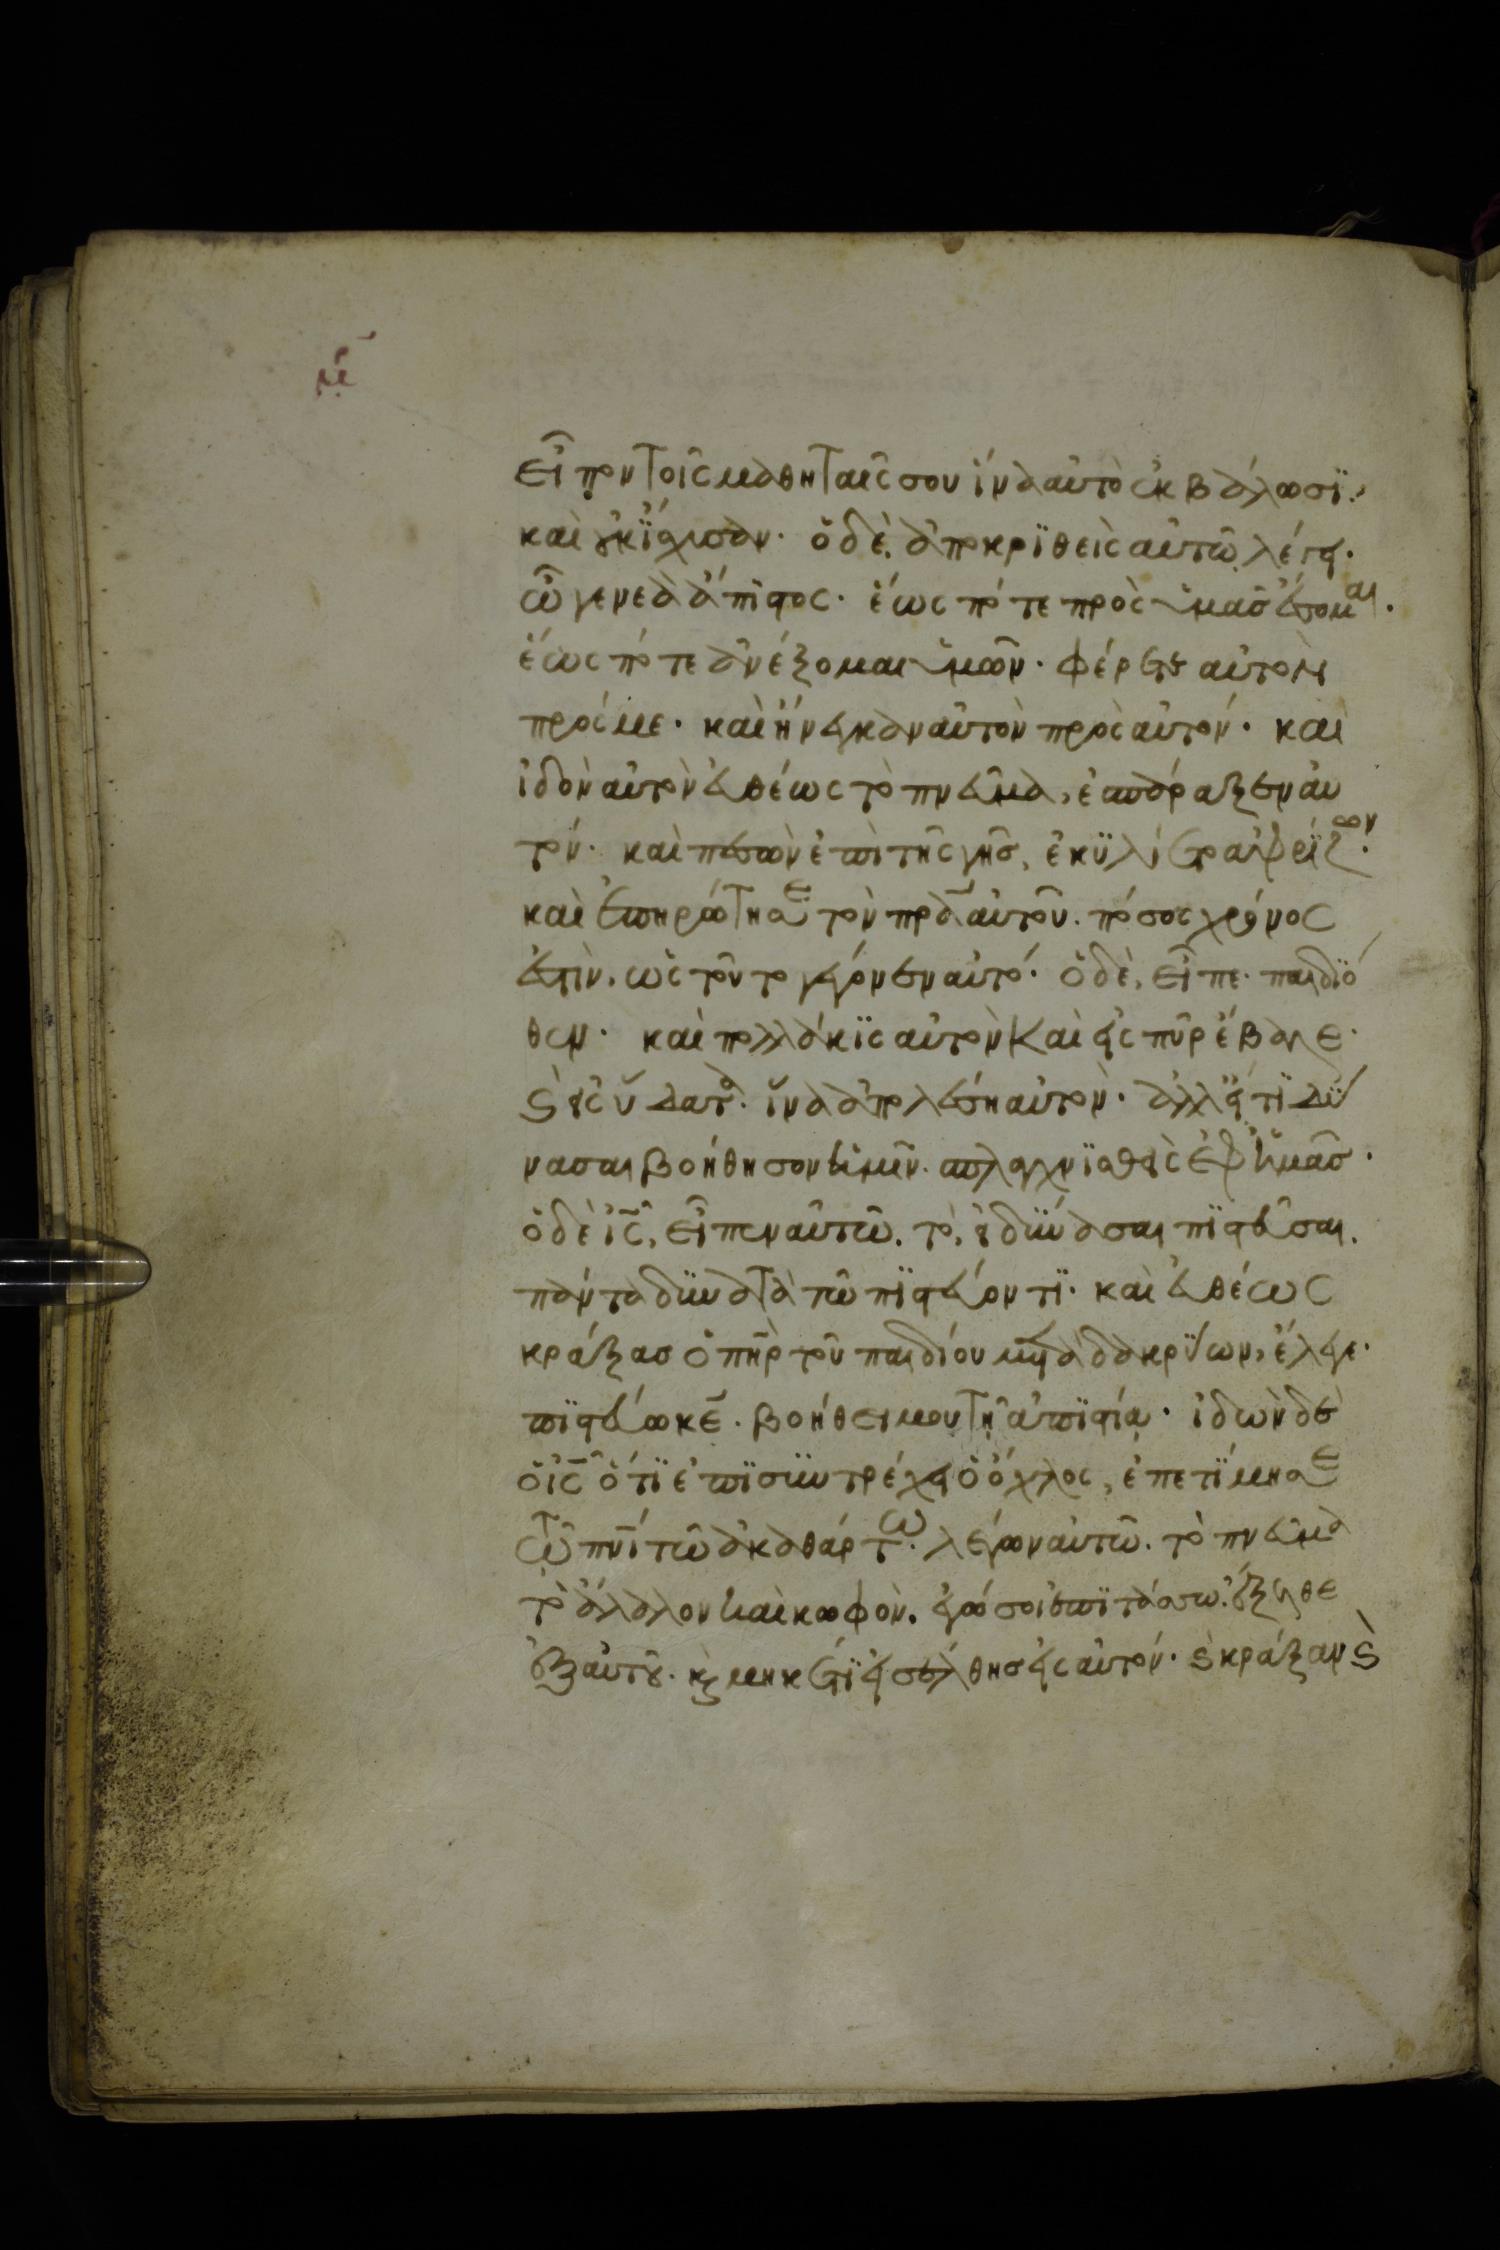 εἶπον τοῖς μαθηταῖς σου ἵνα αὐτὸ ἐκβάλωσϊ.
καὶ οὐκ ἴσχυσαν. ὁ δὲ, ἀποκρϊθεὶς αὐτῶ, λέγει.
ὦ γενεὰ ἄπιστος. ἕως πότε πρὸς ὑμᾶς ἔσομαι.
ἕως πότε ἀνέξομαι ὑμῶν. φέρετε αὐτὸν
πρός με. καὶ ἤνεγκαν αὐτὸν πρὸς αὐτόν. καὶ
ἰδὸν αὐτὸν εὐθέως τὸ πνεῦμα, ἐσπάραξεν αὐ
τόν. καὶ πεσὼν ἐπὶ τῆς γῆς, ἐκϋλίετο ἀφρίζων.
καὶ ἐπηρώτησε τὸν πρα αὐτοῦ. πόσος χρόνος
ἐστὶν, ὡς τοῦτο γέγονεν αὐτό. ὁ δὲ, εἶπε. παιδϊό
θεν. καὶ πολλάκϊς αὐτὸν καὶ εἰς πῦρ ἔβαλε.
καὶ εἰς ὕδατα. ἵνα ἀπολέση αὐτὸν. ἀλλ' εἴ τϊ δϋ
νασαι βοήθησον ἡμῖν. σπλαγχνϊσθεὶς ἐφ' ἡμᾶς.
ὁ δὲ ις, εἶπεν αὐτῶ. τὸ, εἰ δϋνασαι πϊστεῦσαι.
πάντα δϋνατὰ τῶ πϊστεύοντϊ. καὶ εὐθέως
κράξας ὁ πηρ τοῦ παιδίου μετὰ δακρϋων, ἔλεγε.
πϊστεύω κε. βοήθει μου τῆ ἀπϊστία. ἰδὼν δὲ
ὁ ις ὅτϊ ἐπϊσϋντρέχει ὁ ὄχλος, ἐπετϊμησε
τῶ πνι τῶ ἀκαθάρτω. λέγων αὐτῶ. τὸ πνεῦμα
τὸ ἄλαλον καὶ κωφὸν. ἐγώ σοι ἐπϊτάσσω. ἔξελθε
ἐξ αὐτοῦ. καὶ μηκέτϊ εἰσέλθης εἰς αὐτόν. καὶ κράξαν καὶ